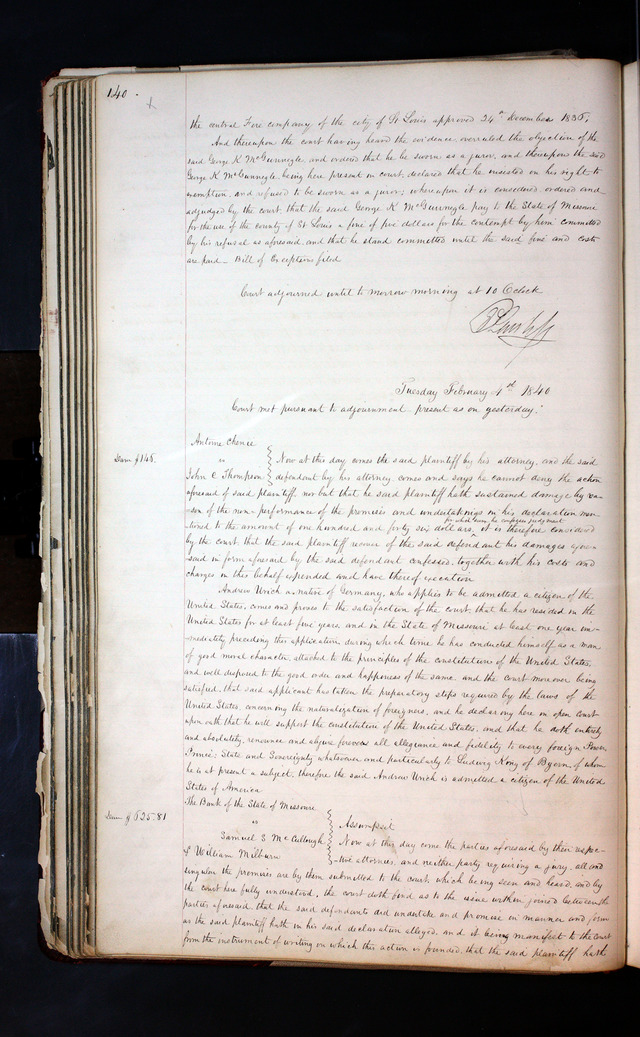 140.
the central Fire company of the city of St Louis, approved 24th December 1835,
And thereupon the court having heard the evidence, overruled the objection of the
said George K McGunnegle and ordered that he be sworn as a juror, and thereupon the said
George K McGunnegle being here present in court, declared that he insisted on his right to
exemption, and refused to be sworn as a juror; whereupon it is considered ordered and
adjudged by the court, that the said George K McGunnegle pay to the State of Missouri
for the use of the county of St Louis a fine of five dollars for the contempt by him committed
by his refusal as aforesaid, and that he stand committed until the said fine and costs
are paid — Bill of Exceptions filed
Court adjourned until to morrow morning at 10 Oclock
Tuesday February 4th 1840
Court met pursuant to adjournment present as on yesterday.
Antoine Chenie
Dam $145. vs Now at this day comes the said plaintiff by his attorney, and the said
John C Thompson defendant by his attorney, comes and says he cannot deny the action
aforesaid of said plaintiff, nor but that he said plaintiff hath sustained damage by rea-
son of the non-performance of the promises and undertakings in his declaration men-
for which sum he confesses judgment
tioned to the amount of one hundred and forty six dollars. it is therefore considered
by the court that the said plaintiff recover of the said defendant his damages afore-
said in form aforesaid by the said defendant confessed, together with his costs and
charges in this behalf expended and have thereof execution
Andrew Urich a native of Germany, who applies to be admitted a citizen of the
United States, comes and proves to the satisfaction of the court, that he has resided in the
United States for at least five years, and in the State of Missouri at least one year im-
-mediately preceding this application during which time he has conducted himself as a man
of good moral character, attached to the principles of the constitution of the United States,
and well disposed to the good order and happiness of the same and the court moreover being
satisfied, that said applicant has taken the preparatory steps required by the laws of the
United States, concerning the naturalization of foreigners, and he declaring here in open court
upon oath that he will support the constitution of the United States, and that he doth entirely
and absolutely, renounce and abjure forever all allegiance and fidelity to every foreign Power,
Prince, State and Sovereignty whatsoever and particularly to Ludwig King of Byern of whom
he is at present a subject, therefore the said Andrew Urich is admitted a citizen of the United
States of America
The Bank of the State of Missouri
Dam $625.81 vs Assumpsit
Samuel S McCullough Now at this day come the parties aforesaid by their respec-
& William Milburn -tive attornies, and neither party requiring a jury, all and
singular the promises are by them submitted to the court, which being seen and heard, and by
the court here fully understood, the court doth find as to the issue within joined between the
parties aforesaid, that the said defendants did undertake and promise in manner and form
as the said plaintiff hath in his said declaration alleged, and it being manifest to the court
from the instrument of writing on which this action is founded, that the said plaintiff hath